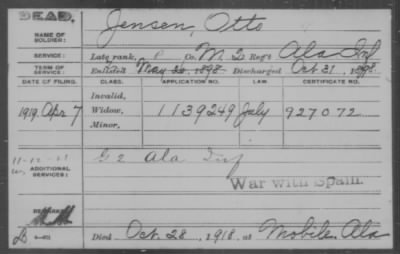 DEAD.
NAME OF SOLDIER: Jensen, Otto
SERVICE: Late rank, P Co. M. 2 Reg't Ala Inf
TERM OF SERVICE: Enlisted May 1898. Discharged Oct 31, 1898.
DATE OF FILING. CLASS. APPLICATION NO. LAW. CERTIFICATE NO.
Invalid,
1919 Apr 7 Widow, 1139249 July 927072
Minor,
ADDITIONAL SERVICES: G 2 Ala Inf
War with Spain.
REMARKS:
Died Oct. 28, 1918, at Mobile Ala